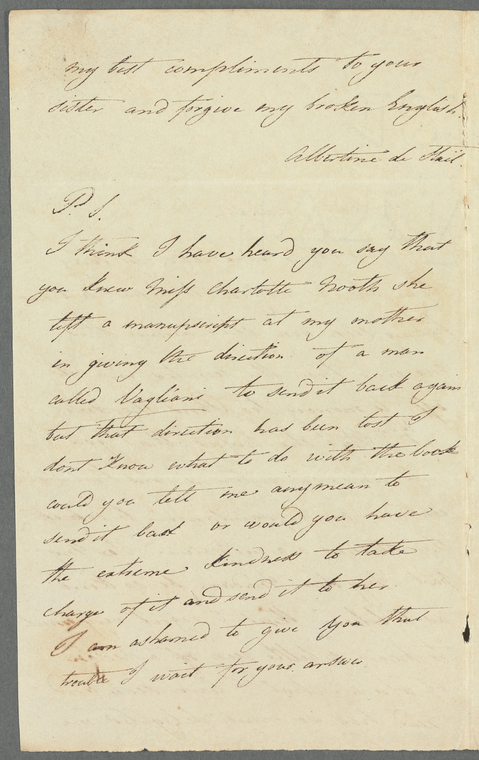 my best compliments to your
sister and forgive my broken English.
Albertine de Stael.
P. S.
I think I have heard you say that
you knew Miss Charlotte Nooth she
left a manupscript at my mother
in giving the direction of a man
called Vagliani to send it back again
but that direction has been lost I
dont know what to do with the book
could you tell me any mean to
send it back or would you have
the extreme kindness to take
charge of it and send it to her
I am ashamed to give you that
trouble I wait for your answer